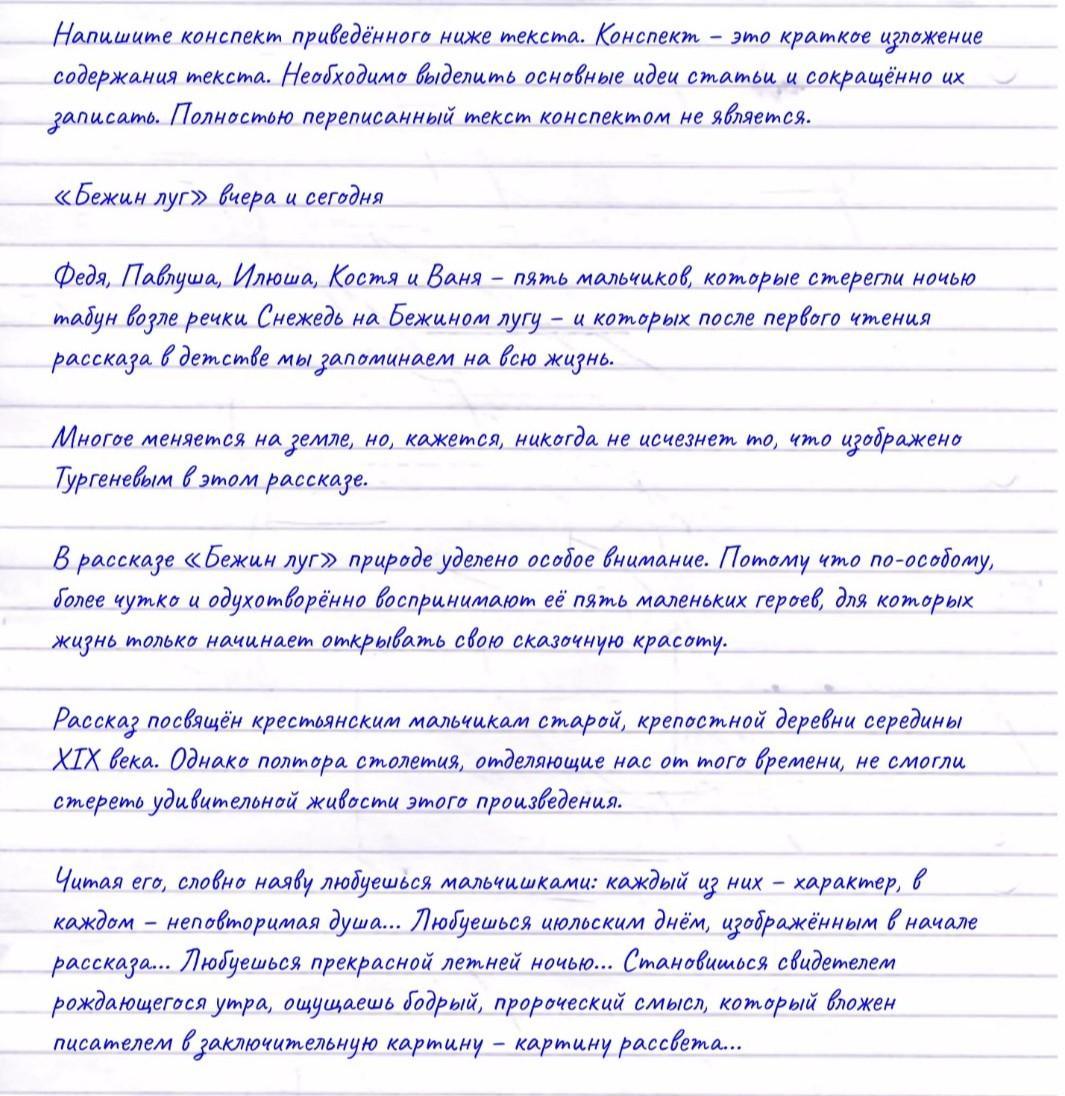 Напишите конспект приведённого ниже текста. Конспект – это краткое изложение
содержания текста. Необходимо выделить основные идеи статьи и сокращённо их
записать. Полностью переписанный текст конспектом не является.
«Бежин луг» вчера и сегодня
Федя, Павлуша, Илюша, Костя и Ваня – пять мальчиков, которые стерегли ночью
табун возле речки Снежедь на Бежином лугу – и которых после первого чтения
рассказа в детстве мы запоминаем на всю жизнь.
Многое меняется на земле, но, кажется, никогда не исчезнет то, что изображено
Тургеневым в этом рассказе.
В рассказе «Бежин луг» природе уделено особое внимание. Потому что по-особому,
более чутко и одухотворённо воспринимают её пять маленьких героев, для которых
жизнь только начинает открывать свою сказочную красоту.
Рассказ посвящён крестьянским мальчикам старой, крепостной деревни середины
XIX века. Однако полтора столетия, отделяющие нас от того времени, не смогли
стереть удивительной живости этого произведения.
Читая его, словно наяву любуешься мальчишками: каждый из них – характер, в
каждом – неповторимая душа... Любуешься июльским днём, изображённым в начале
рассказа... Любуешься прекрасной летней ночью... Становишься свидетелем
рождающегося утра, ощущаешь бодрый, пророческий смысл, который вложен
писателем в заключительную картину – картину рассвета...